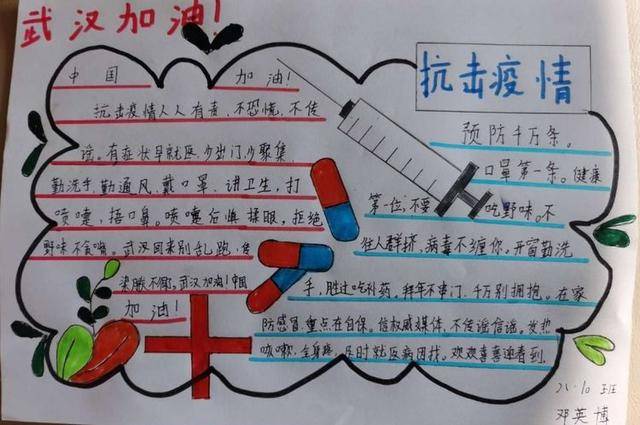 武汉加油!
抗击疫情
中国 加油!
抗击疫情人人有责,不恐慌,不传
谣。有症状早就医,少出门,少聚集
勤洗手,勤通风,戴口罩,讲卫生,打
喷嚏,捂口鼻。喷嚏后慎揉眼,拒绝
野味不贪嘴。武汉回来别乱跑,传
染源不闹。武汉加油!中国
加油!
预防千万条。
口罩第一条。健康
第一位,不要吃野味。不
往人群挤,病毒不缠你,开窗勤洗
手,胜过吃补药,拜年不串门,千万别拥抱。在家
防感冒,重点在自保。信权威媒体,不传谣信谣。发热
咳嗽,全身疼,及时就医病因找。欢欢喜喜迎春到.
21·10班
邓英博